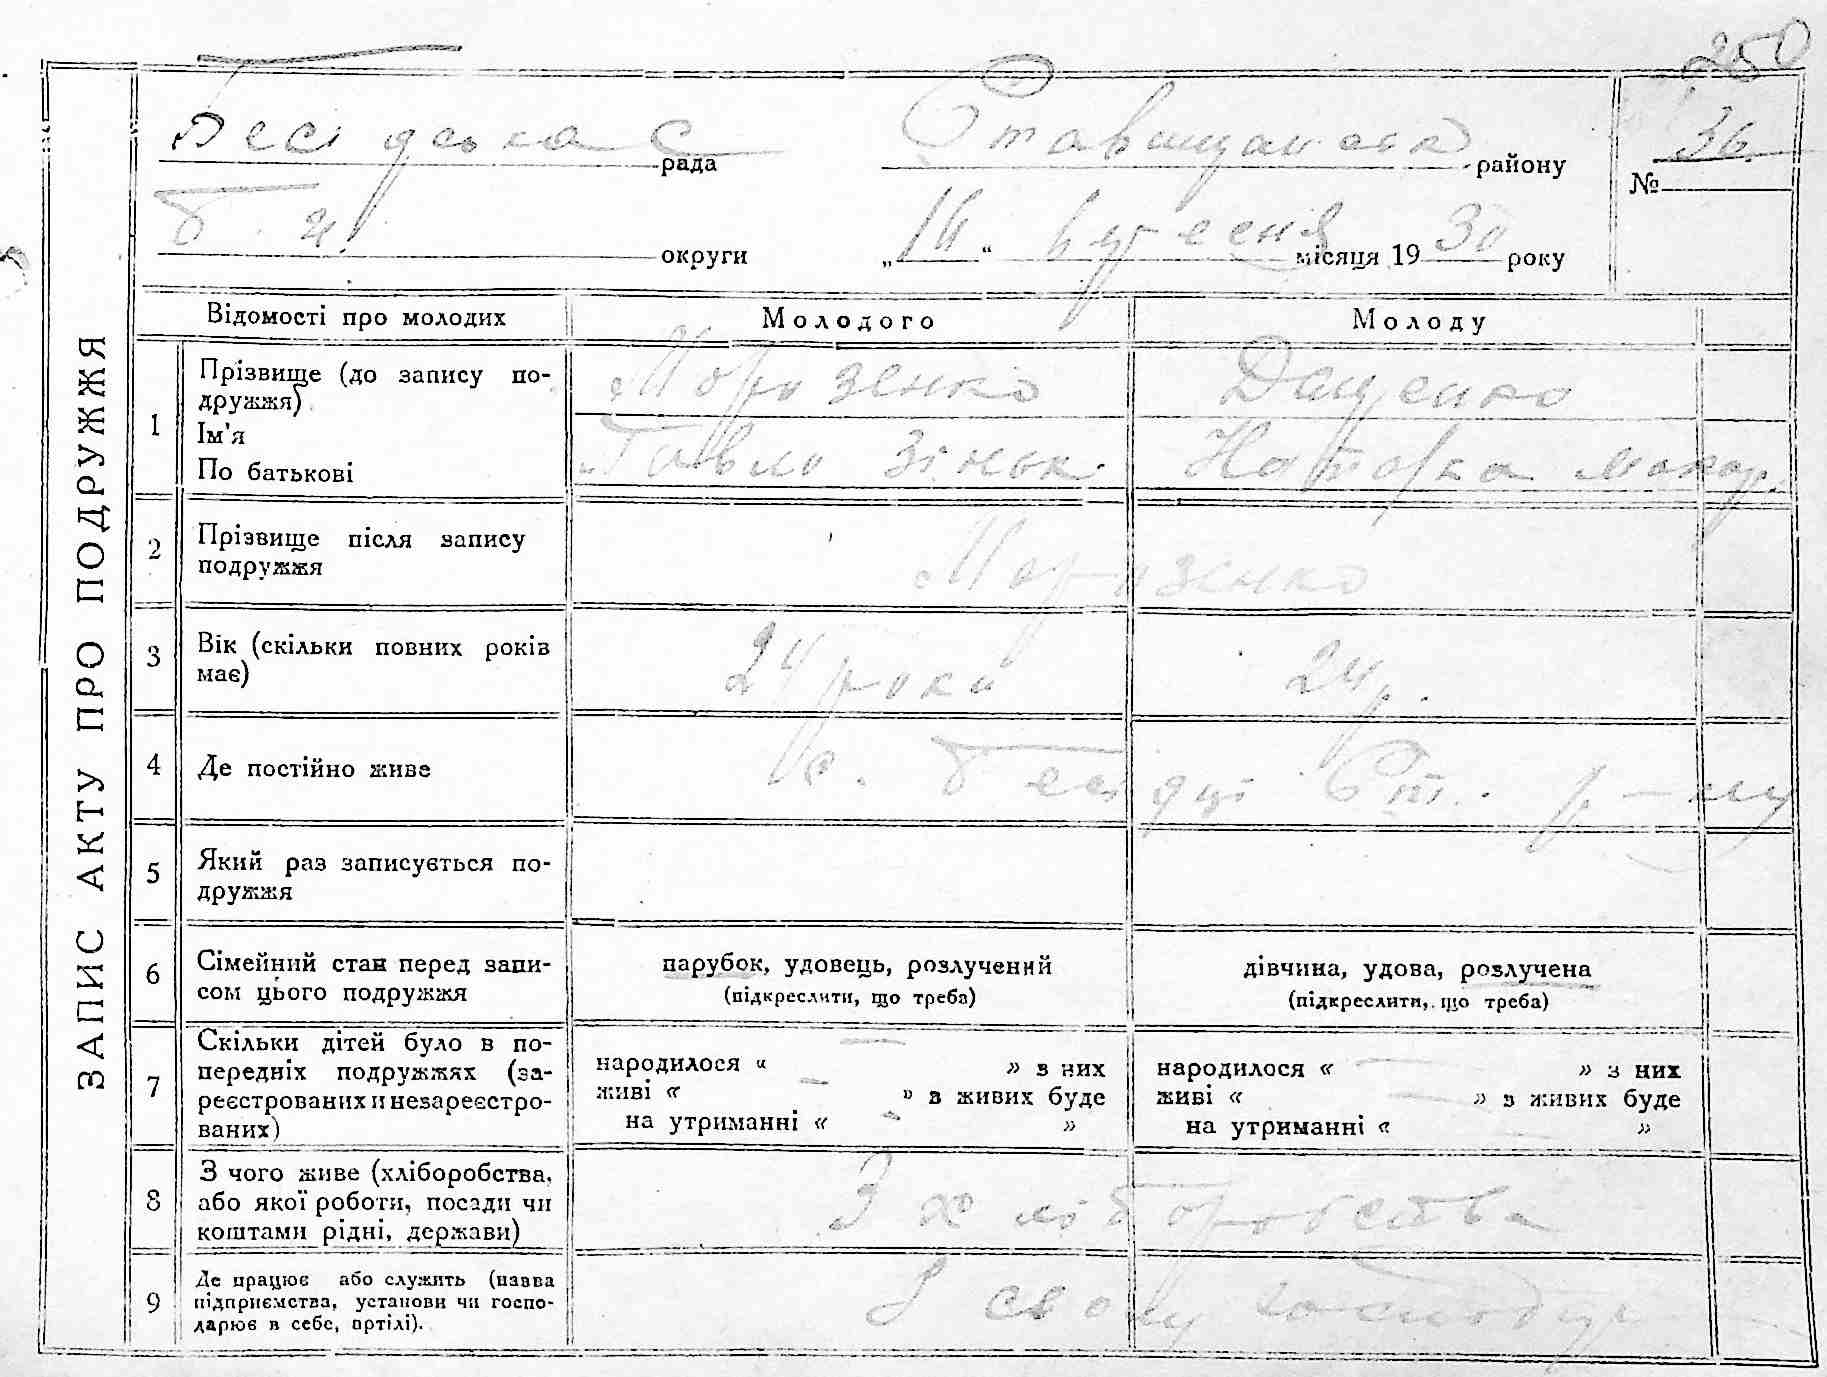 250
Бесідська с рада Ставищанськ району
№ 36.
Б. Ц. округи „16“ вересня місяця 1930 року
ЗАПИС АКТУ ПРО ПОДРУЖЖЯ
Відомості про молодих Молодого Молоду
1 Прізвище (до запису по-
дружжя) Морозенко Даценко
Ім'я
По батькові Павло Зіньк. Натолка Макар.
2 Прізвище після запису
подружжя Морозенко
3 Вік (скільки повних років
має) 24 роки 24 р.
4 Де постійно живе с. Бесідці Ст. р-ну
5 Який раз записується по-
дружжя
6 Сімейний стан перед запи-
сом цього подружжя
парубок, удовець, розлучений
(підкреслити, що треба)
дівчина, удова, розлучена
(підкреслити, що треба)
7 Скільки дітей було в по-
передніх подружжях (за-
реєстрованих и незареєстро-
ваних)
народилося “ — » з них
живі « — » з живих буде
на утриманні « — »
народилося « — » з них
живі « — » з живих буде
на утриманні « — »
8 З чого живе (хліборобства,
або якої роботи, посади чи
коштами рідні, держави)
З хліборобства
9 Де працює або служить (назва
підприємства, установи чи госпо-
дарює в себе, артілі).
В свому господар